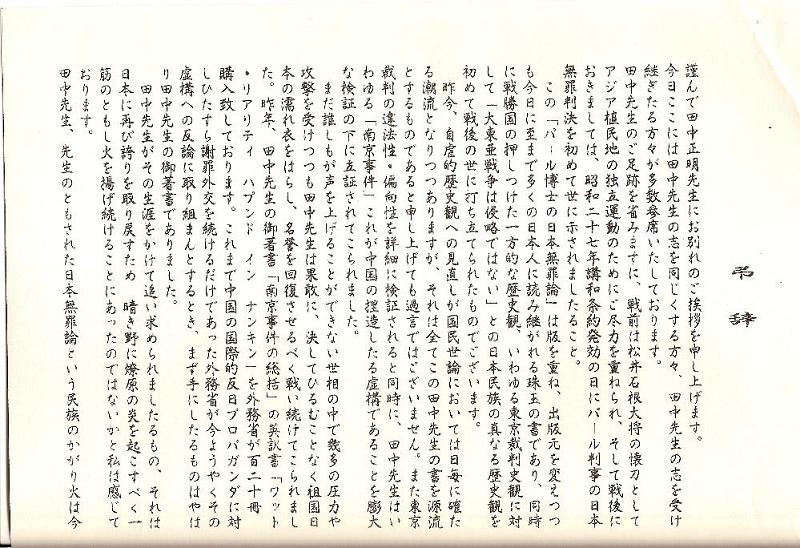 弔辞
謹んで田中正明先生にお別れのご挨拶を申し上げます。
今日ここには田中先生の志を同じくする方々、田中先生の志を受け
継ぎたる方々が多数参席いたしております。
田中先生のご足跡を省みますに、戦前は松井石根大将の懐刀として
アジア植民地の独立運動のためにご尽力を重ねられ、そして戦後に
おきましては、昭和二十七年講和条約発効の日にパール判事の日本
無罪判決を初めて世に示されましたること。
この「パール博士の日本無罪論」は版を重ね、出版元を変えつつ
も今日に至まで多くの日本人に読み継がれる珠玉の書であり、同時
に戦勝国の押しつけた一方的な歴史観、いわゆる東京裁判史観に対
して「大東亜戦争は侵略ではない」との日本民族の真なる歴史観を
初めて戦後の世に打ち立てられたものでございます。
昨今、自虐的歴史観への見直しが国民世論においては日毎に確た
る潮流となりつつありますが、それは全てこの田中先生の書を源流
とするものであると申し上げても過言ではございません。また東京
裁判の違法性・偏向性を詳細に検証されると同時に、田中先生はい
わゆる「南京事件」これが中国の捏造したる虚構であることを膨大
な検証の下に立証されてこられました。
まだ誰しもが声を上げることができない世相の中で幾多の圧力や
攻撃を受けつつも田中先生は果敢に、決してひるむことなく祖国日
本の濡れ衣をはらし、名誉を回復させるべく戦い続けてこられまし
た。昨年、田中先生の御著書「南京事件の総括」の英訳書「ワット
・リアリティ ハプンド イン ナンキン」を外務省が百二十冊
購入致しております。これまで中国の国際的反日プロパガンダに対
しひたすら謝罪外交を続けるだけであった外務省が今ようやくその
虚構への反論に取り組まんとするとき、まず手にしたるものはやは
り田中先生の御著書でありました。
田中先生がその生涯をかけて追い求められましたるもの、それは
日本に再び誇りを取り戻すため 暗き野に燎原の炎を起こすべく一
筋のともし火を掲げ続けることにあったのではないかと私は感じて
おります。
田中先生、先生のともされた日本無罪論という民族のかがり火は今